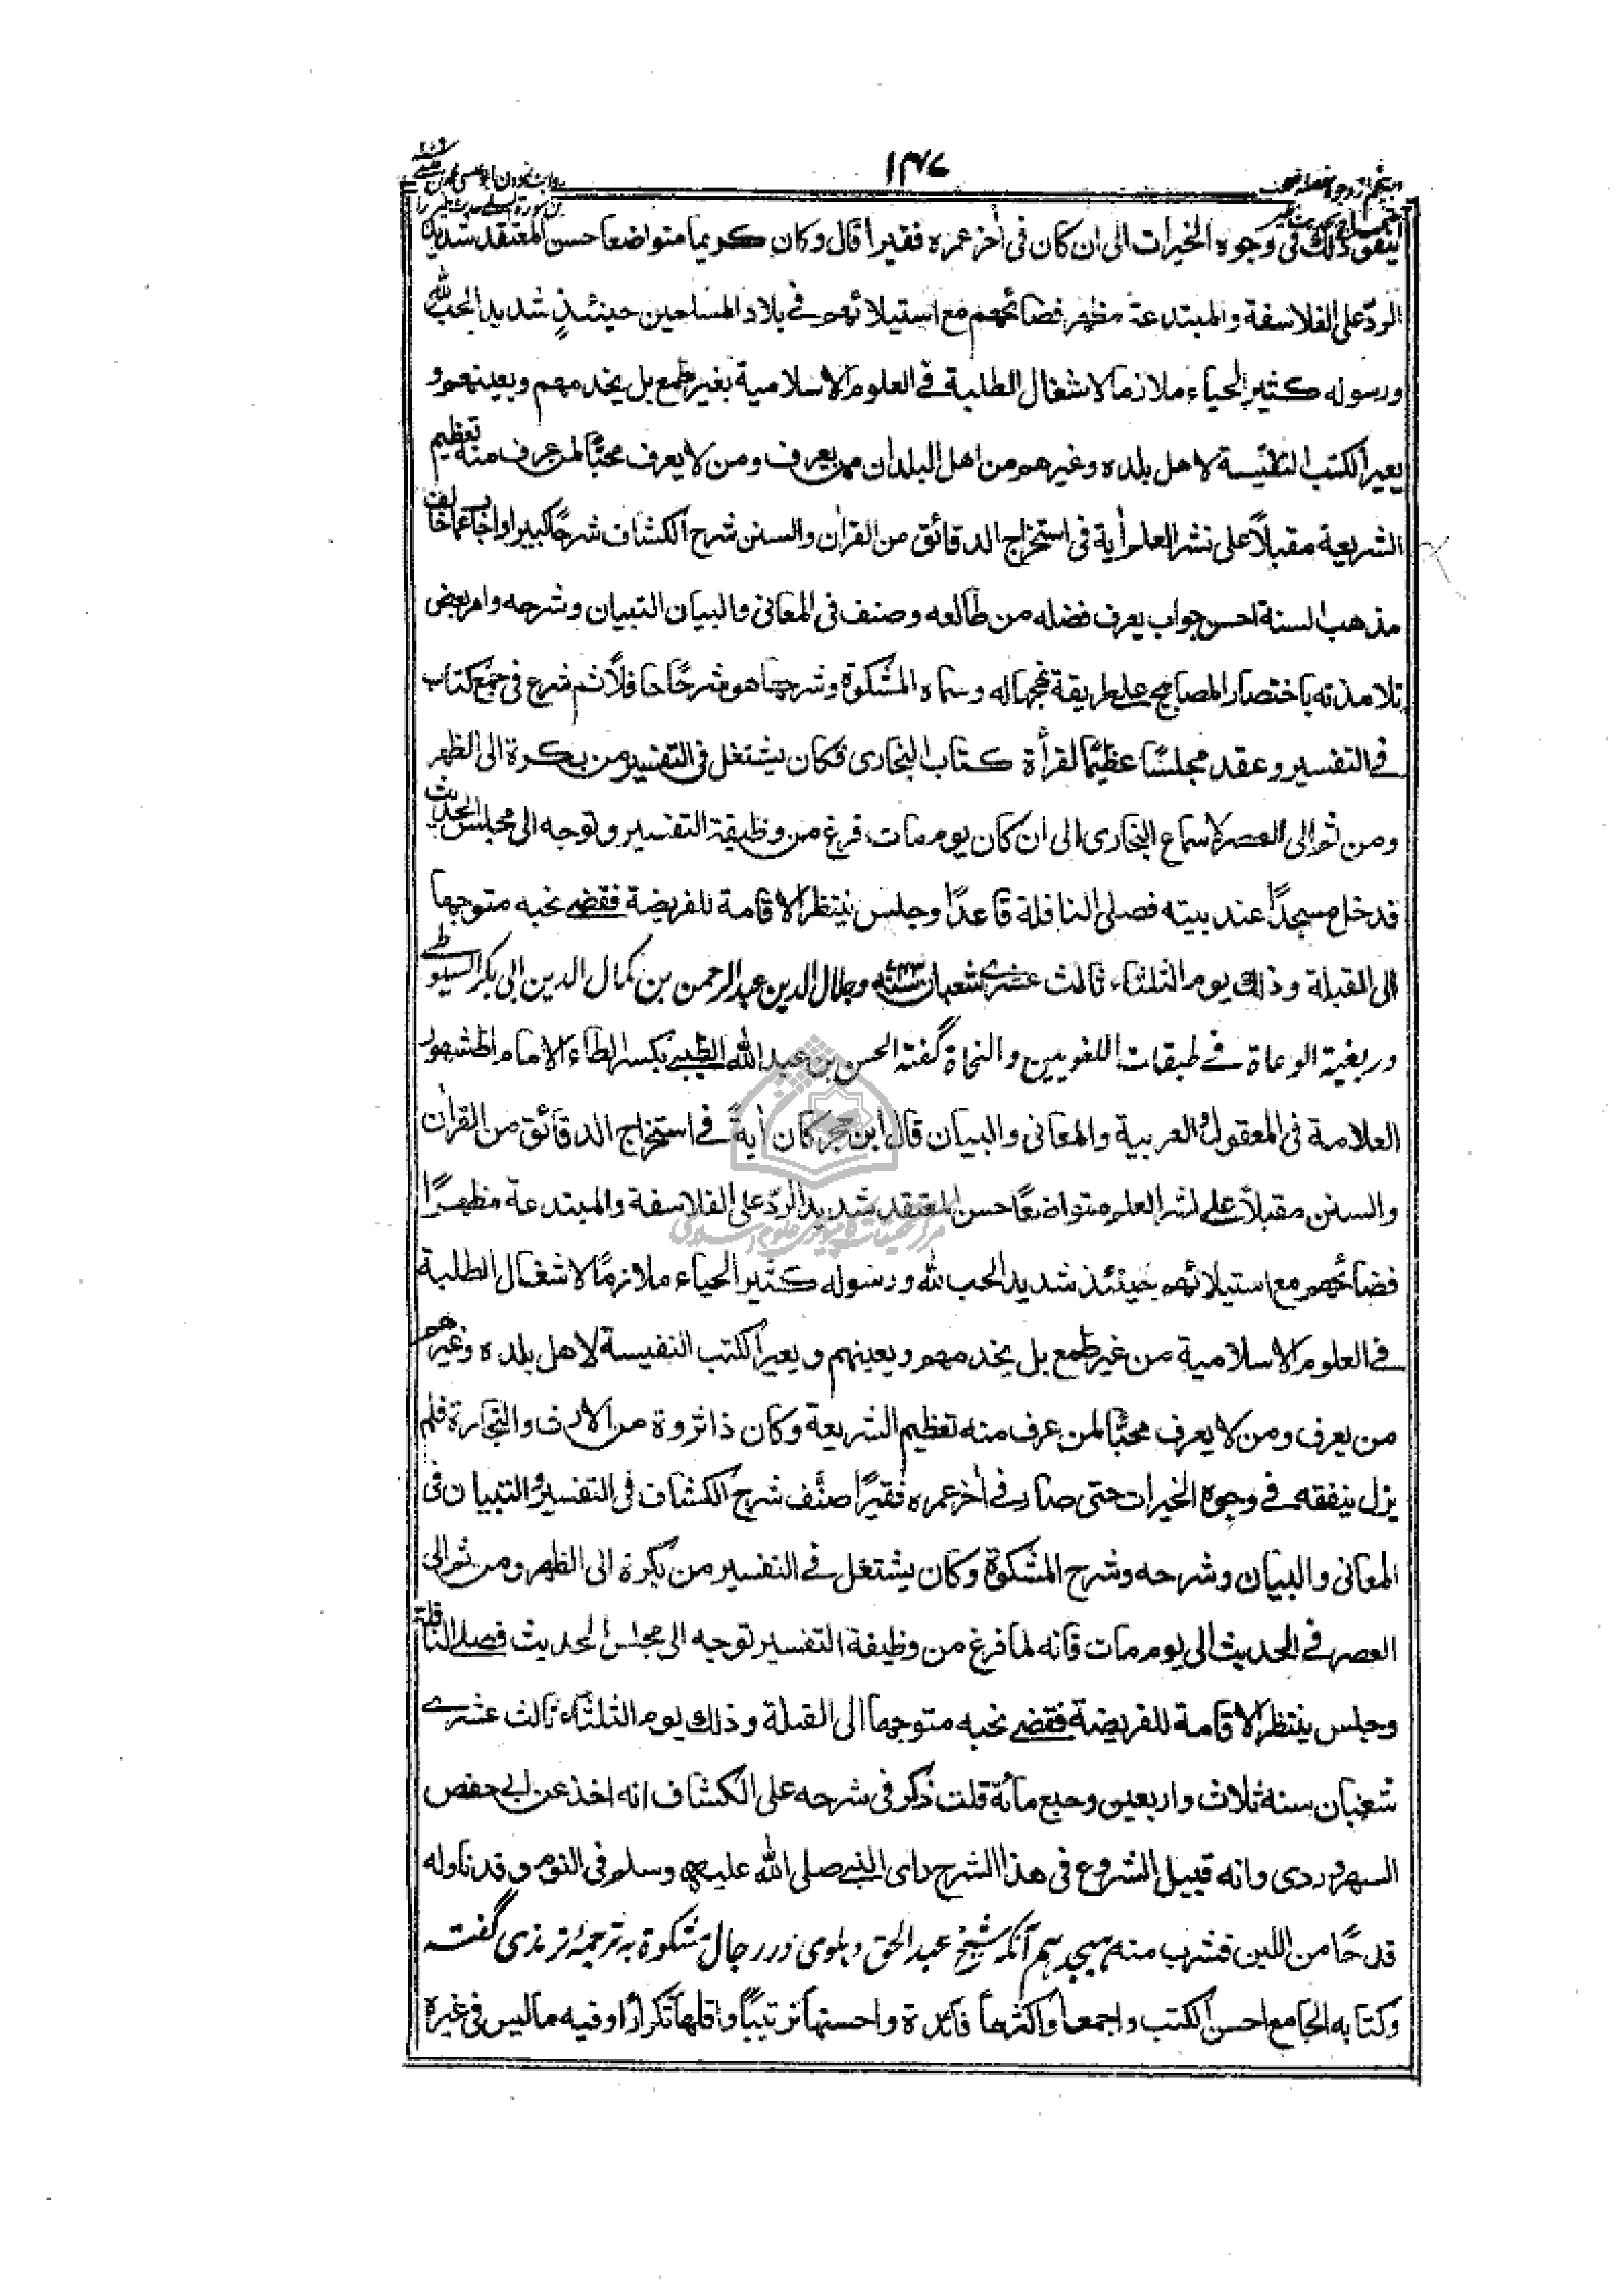 ١٣٧
ينفق ذلك فى وجوه الخيرات الى ان كان فى اٰخر عمره فقيرا قال وكان كريما متواضعا حسن المعتقد شديد
الردّ على الفلاسفة والمبتدعة مظهر فضائحهم مع استيلائهم فى بلاد المسلمين حينئذٍ شديد الحب لله
ورسوله كثير الحياء ملازما لاشغال الطلبة فى العلوم الاسلامية بغير طمع بل يخدمهم ويعينهم و
يعير الكتب النفيسة لاهل بلده وغيرهم من اهل البلدان ممن يعرف ومن لا يعرف محبًّا لمن عرف منه تعظيم
الشريعة مقبلاً على نشر العلم اٰية فى استخراج الدقائق من القراٰن والسنن شرح الكشاف شرحًا كبيرا واجاب عما خالف
مذهب السنة احسن جواب يعرف فضله من طالعه وصنف فى المعانى والبيان التبيان وشرحه وامر بعض
تلامذته باختصار المصابيح على طريقة نهجها له وسماه المشكوة وشرحها هو شرحًا حافلاً ثم شرع فى جمع كتاب
فى التفسير وعقد مجلسًا عظيمًا لقرأة كتاب البخارى فكان يشتغل فى التفسير من بكرة الى الظهر
ومن ثم الى العصر لاسماع البخارى الى ان كان يوم مات فرغ من وظيفة التفسير وتوجه الى مجلس الحديث
فدخل مسجدًا عند بيته فصلى النافلة قاعدًا وجلس ينتظر الاقامة للفريضة فقضى نحبه متوجها
الى القبلة وذلك يوم الثلثاء ثالث عشرى شعبان سنة ٧٤٣ وجلال الدين عبد الرحمن بن كمال الدين ابى بكر السيوطى
در بغية الوعاة فى طبقات اللغويين والنحاة گفته الحسن بن عبد الله الطيبى بكسر الطاء الامام المشهور
العلامة فى المعقول والعربية والمعانى والبيان قال ابن حجر كان اٰيةً فى استخراج الدقائق من القراٰن
والسنن مقبلاً على نشر العلم متواضعًا حسن المعتقد شديد الردّ على الفلاسفة والمبتدعة مظهرًا
فضائحهم مع استيلائهم حينئذ شديد الحب لله ورسوله كثير الحياء ملازمًا لاشغال الطلبة
فى العلوم الاسلامية من غير طمع بل يخدمهم ويعينهم ويعير الكتب النفيسة لاهل بلده وغيرهم
من يعرف ومن لا يعرف محبًّا لمن عرف منه تعظيم الشريعة وكان ذا ثروة من الارث والتجارة فلم
يزل ينفقه فى وجوه الخيرات حتى صار فى اٰخر عمره فقيرًا صنّف شرح الكشاف فى التفسير والتبيان فى
المعانى والبيان وشرحه وشرح المشكوة وكان يشتغل فى التفسير من بكرة الى الظهر ومن ثم الى
العصر فى الحديث الى يوم مات فانه لما فرغ من وظيفة التفسير توجه الى مجلس الحديث فصلى النافلة
وجلس ينتظر الاقامة للفريضة فقضى نحبه متوجها الى القبلة وذلك يوم الثلثاء ثالث عشرى
شعبان سنة ثلاث واربعين وسبع مأئة قلت ذكر فى شرحه على الكشاف انه اخذ عن ابى حفص
السهروردى وانه قبيل الشروع فى هذا الشرح راى النبى صلى الله عليه وسلم فى النوم وقد ناوله
قدحًا من اللبن فشرب منه هيجدهم آنكه شيخ عبد الحق دهلوى در رجال مشكوة به ترجمۀ ترمذى گفته
وكتابه الجامع احسن الكتب واجمعها واكثرها فائدة واحسنها ترتيبًا واقلها تكرارًا وفيه ما ليس فى غيره